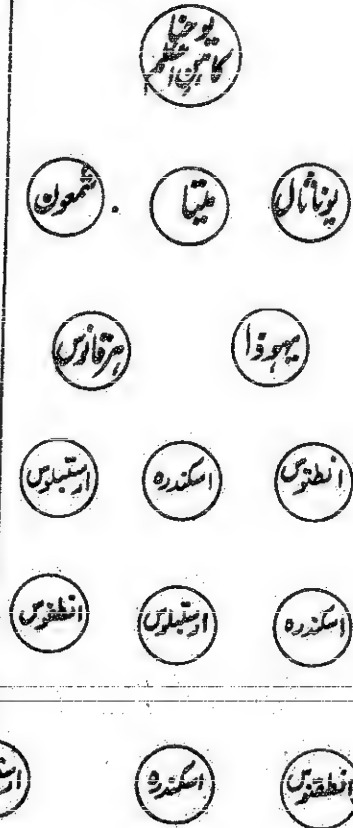 یوحنا
کاہنِ اعظم
یوناثال متیتا شمعون
یہوذا ہرقانوس
انطنوس اسکندرہ ارستبلوس
اسکندرہ ارستبلوس انطغنوس
انطقنوس اسکندرہ